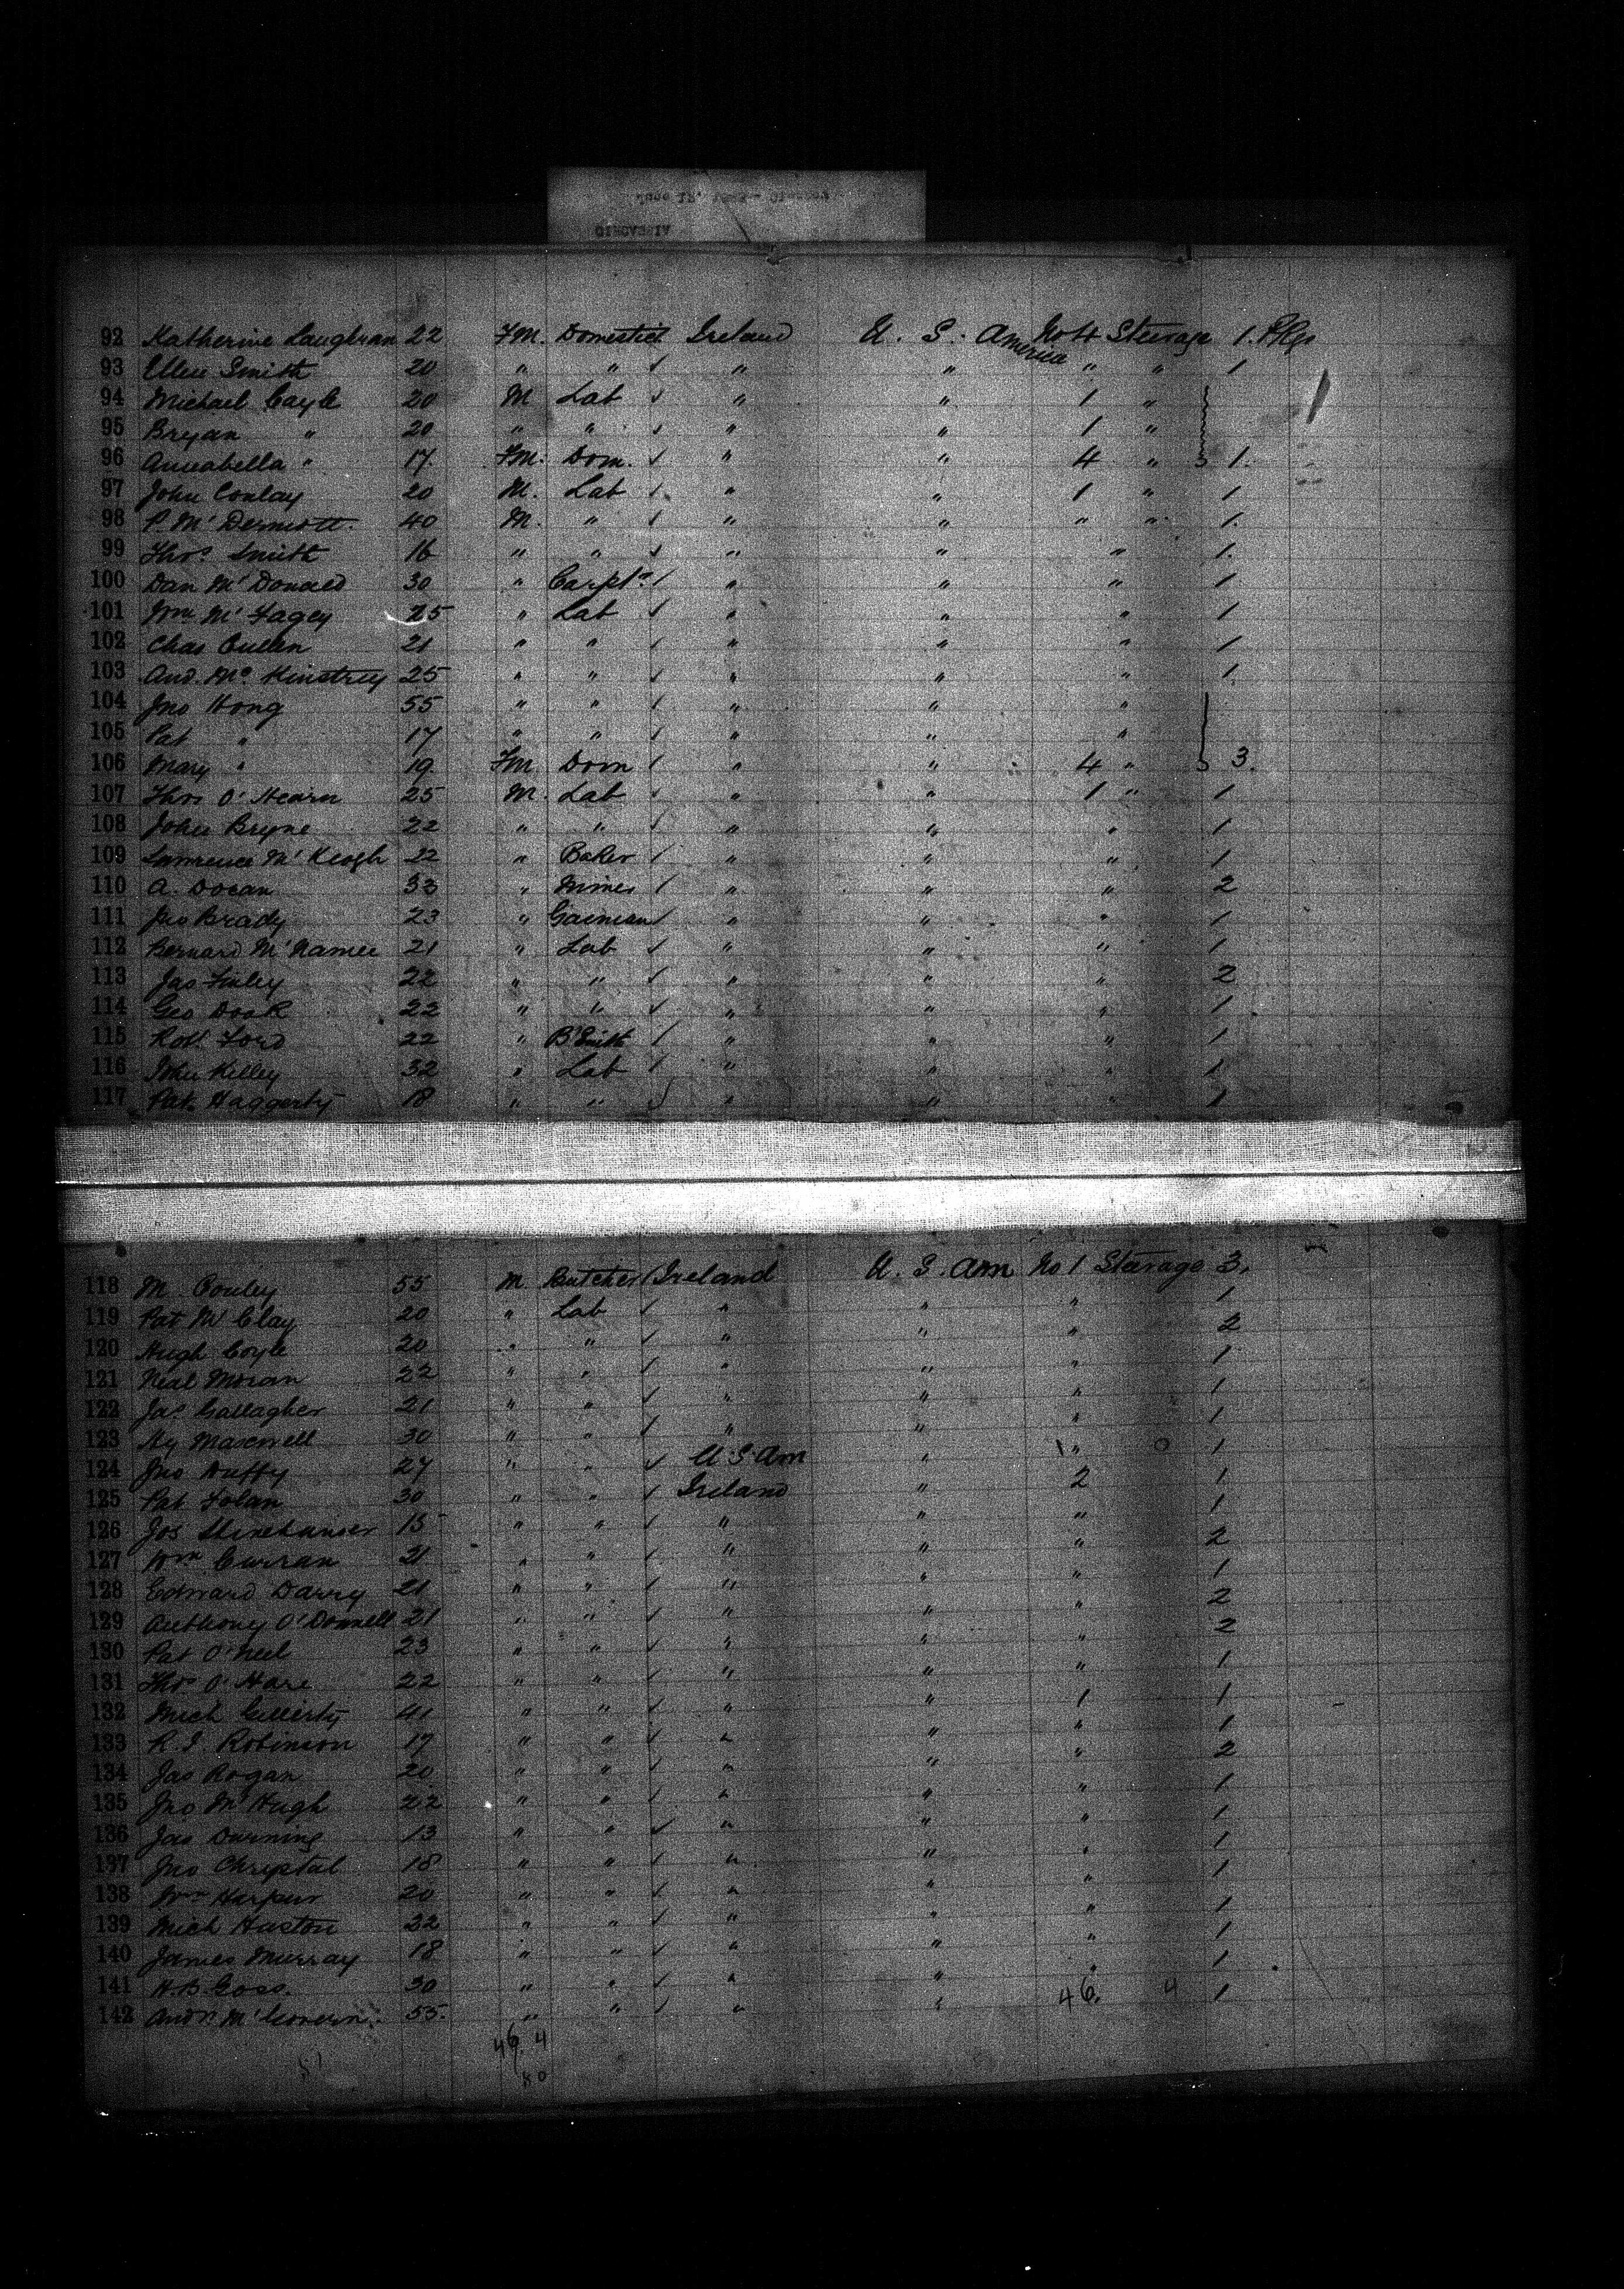 92 Katherine Laughran 22 FM. Domestic Ireland U. S. America No 4 Steerage 1. Pkgs
93 Ellen Smith 20 " " ✓ " " " " 1
94 Michael Cayle 20 M Lab ✓ " " 1 "
95 Bryan " 20 " " ✓ " " 1 "
96 Annabella " 17. FM. Dom. ✓ " " 4 " 1.
97 John Conlay 20 M. Lab ✓ " " 1 " 1
98 P McDermott. 40 M. " ✓ " " " " 1.
99 Thos. Smith 16 " " ✓ " " " 1.
100 Dan McDonald 30 " Carptr ✓ " " " 1
101 Wm McFagey 25 " Lab ✓ " " " 1
102 Chas Cullen 21 " " ✓ " " " 1
103 And. Mc Kinstrey 25 " " ✓ " " " 1.
104 Jno Hong 55 " " ✓ " " "
105 Pat " 17 " " ✓ " " "
106 Mary " 19. FM. Dom ✓ " " 4 " 3.
107 Thos O'Hearn 25 M. Lab ✓ " " 1 " 1
108 John Bryne 22 " " ✓ " " " 1
109 Lawrence McKeogh 22 " Baker ✓ " " " 1
110 A. Docan 33 " Miner ✓ " " " 2
111 Jno Brady 23 " ✓ " " " 1
112 Bernard McNamee 21 " Lab ✓ " " " 1
113 Jas Finley 22 " " ✓ " " " 2
114 Geo Dook 22 " " ✓ " " " 1
115 Robt. Ford 22 " B'Smith ✓ " " " 1
116 John Killey 32 " Lab ✓ " " " 1
117 Pat. Haggerty 18 " " ✓ " " " 1
118 M. Conley 55 M. Butcher ✓ Ireland U. S. Am No 1 Steerage 3.
119 Pat McClay 20 " Lab ✓ " " " 1
120 Hugh Coyle 20 " " ✓ " " " 2
121 Neal Moran 22 " " ✓ " " " 1
122 Jas Gallagher 21 " " ✓ " " " 1
123 Hy Maxwell 30 " " ✓ " " " 1
124 Jno Duffy 27 " " ✓ U. S. Am " " 1
125 Pat Folan 30 " " ✓ Ireland " 2 1
126 Jos 15 " " ✓ " " " 1
127 Wm Curran 21 " " ✓ " " " 2
128 Edward Darry 21 " " ✓ " " " 1
129 Anthony O'Donnell 21 " " ✓ " " " 2
130 Pat O'Neel 23 " " ✓ " " " 2
131 Thos O'Hare 22 " " ✓ " " " 1
132 Mich Gillerty 41 " " ✓ " " 1 1
133 R. J. Robinson 17 " " ✓ " " " 1
134 Jas Rogan 20 " " ✓ " " " 2
135 Jno McHugh 22 " " ✓ " " " 1
136 Jas Durning 13 " " ✓ " " " 1
137 Jno Chrystal 18 " " ✓ " " " 1
138 Wm Harper 20 " " ✓ " " " 1
139 Mich Haston 22 " " ✓ " " " 1
140 James Murray 18 " " ✓ " " " 1
141 H. B. Goss. 30 " " ✓ " " " 1
142 Andw McGovern. 55. " " ✓ " " 46. 4 1
46. 4